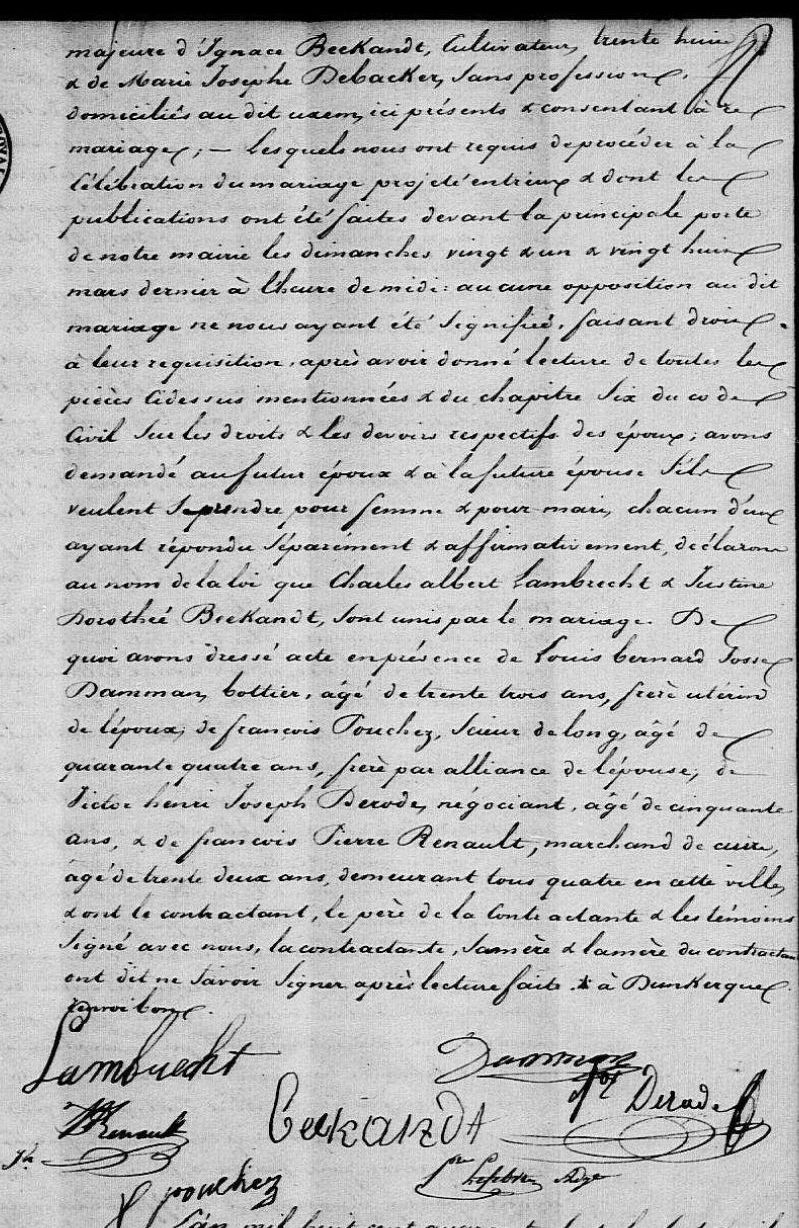 majeure d'Ignace Beekandt, Cultivateur, trente huit
& de Marie Josephe Debacker, sans profession,
domiciliés au dit uxem, ici présents & consentant à ce
mariage; – Lesquels nous ont requis de procéder à la
Célébration du mariage projeté entr'eux & dont les
publications ont été faites devant la principale porte
de notre mairie les dimanches vingt & un & vingt huit
mars dernier à l'heure de midi: aucune opposition au dit
mariage ne nous ayant été signifié, faisant droit
à leur requisition, après avoir donné lecture de toutes les
pièces cidessus mentionnées & du chapitre Six du code
Civil sur les droits & les devoirs respectifs des époux; avons
demandé au futur époux & à la future épouse s'ils
veulent se prendre pour femme & pour mari, chacun d'eux
ayant répondu séparément & affirmativement, déclarons
au nom de la loi que Charles albert Lambrecht & Justine
Dorothée Beekandt, sont unis par le mariage. De
quoi avons dressé acte en présence de Louis bernard Josse
Damman, bottier, âgé de trente trois ans, frère utérin
de l'époux; de françois Pouchez, Scieur de long, âgé de
quarante quatre ans, frère par alliance de l'épouse, de
Victor henri Joseph Derode, négociant, âgé de cinquante
ans, & de françois Pierre Renault, marchand de cuirs,
âgé de trente deux ans, demeurant tous quatre en cette ville,
dont le contractant, le père de la Contractante & les témoins
signé avec nous, la contractante, sa mère & la mère du contractant
ont dit ne savoir signer après lecture faite. * à Dunkerque
renvoi bon.
Lambrecht
Damman
Renault
Beekandt
Vor Derode
f pouchez
Lefebvre Adj
L'an mil huit cent quarante